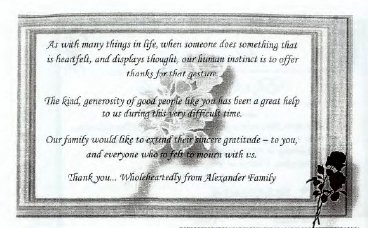 As with many things in life, when someone does something that
is heartfelt, and displays thought, our human instinct is to offer
thanks for that gesture.
The kind, generosity of good people like you has been a great help
to us during this very difficult time.
Our family would like to extend their sincere gratitude – to you,
and everyone who so felt to mourn with us.
Thank you... Wholeheartedly from Alexander Family